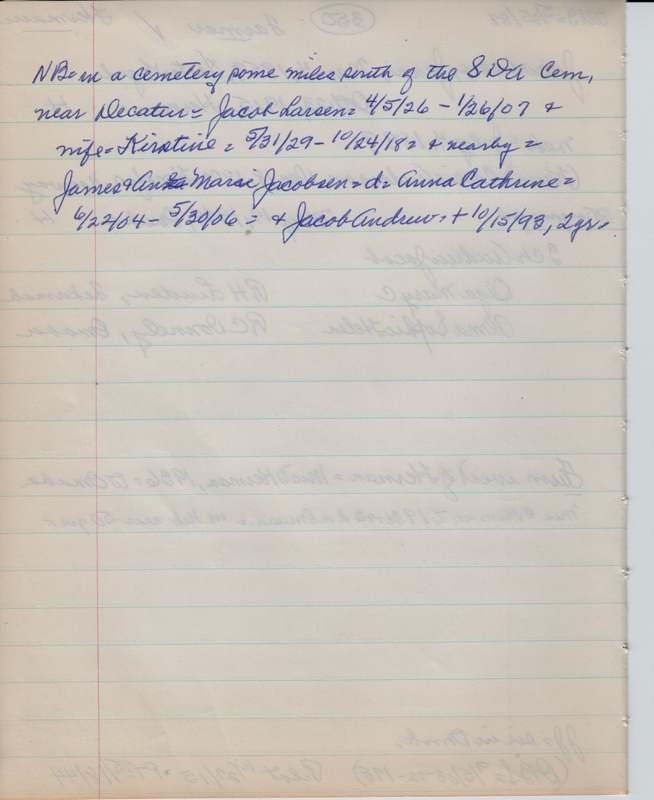 NB= in a cemetery some miles south of the SDA Cem,
near Decatur = Jacob Larsen = 4/5/26 - 1/26/07 &
wife = Kirstine = 5/31/29 - 10/24/18 = & nearby =
James & Marie Jacobsen = d = Anna Cathrine =
6/22/04 - 5/30/06 = & Jacob Andrew = + 10/15/93, 2 yr =